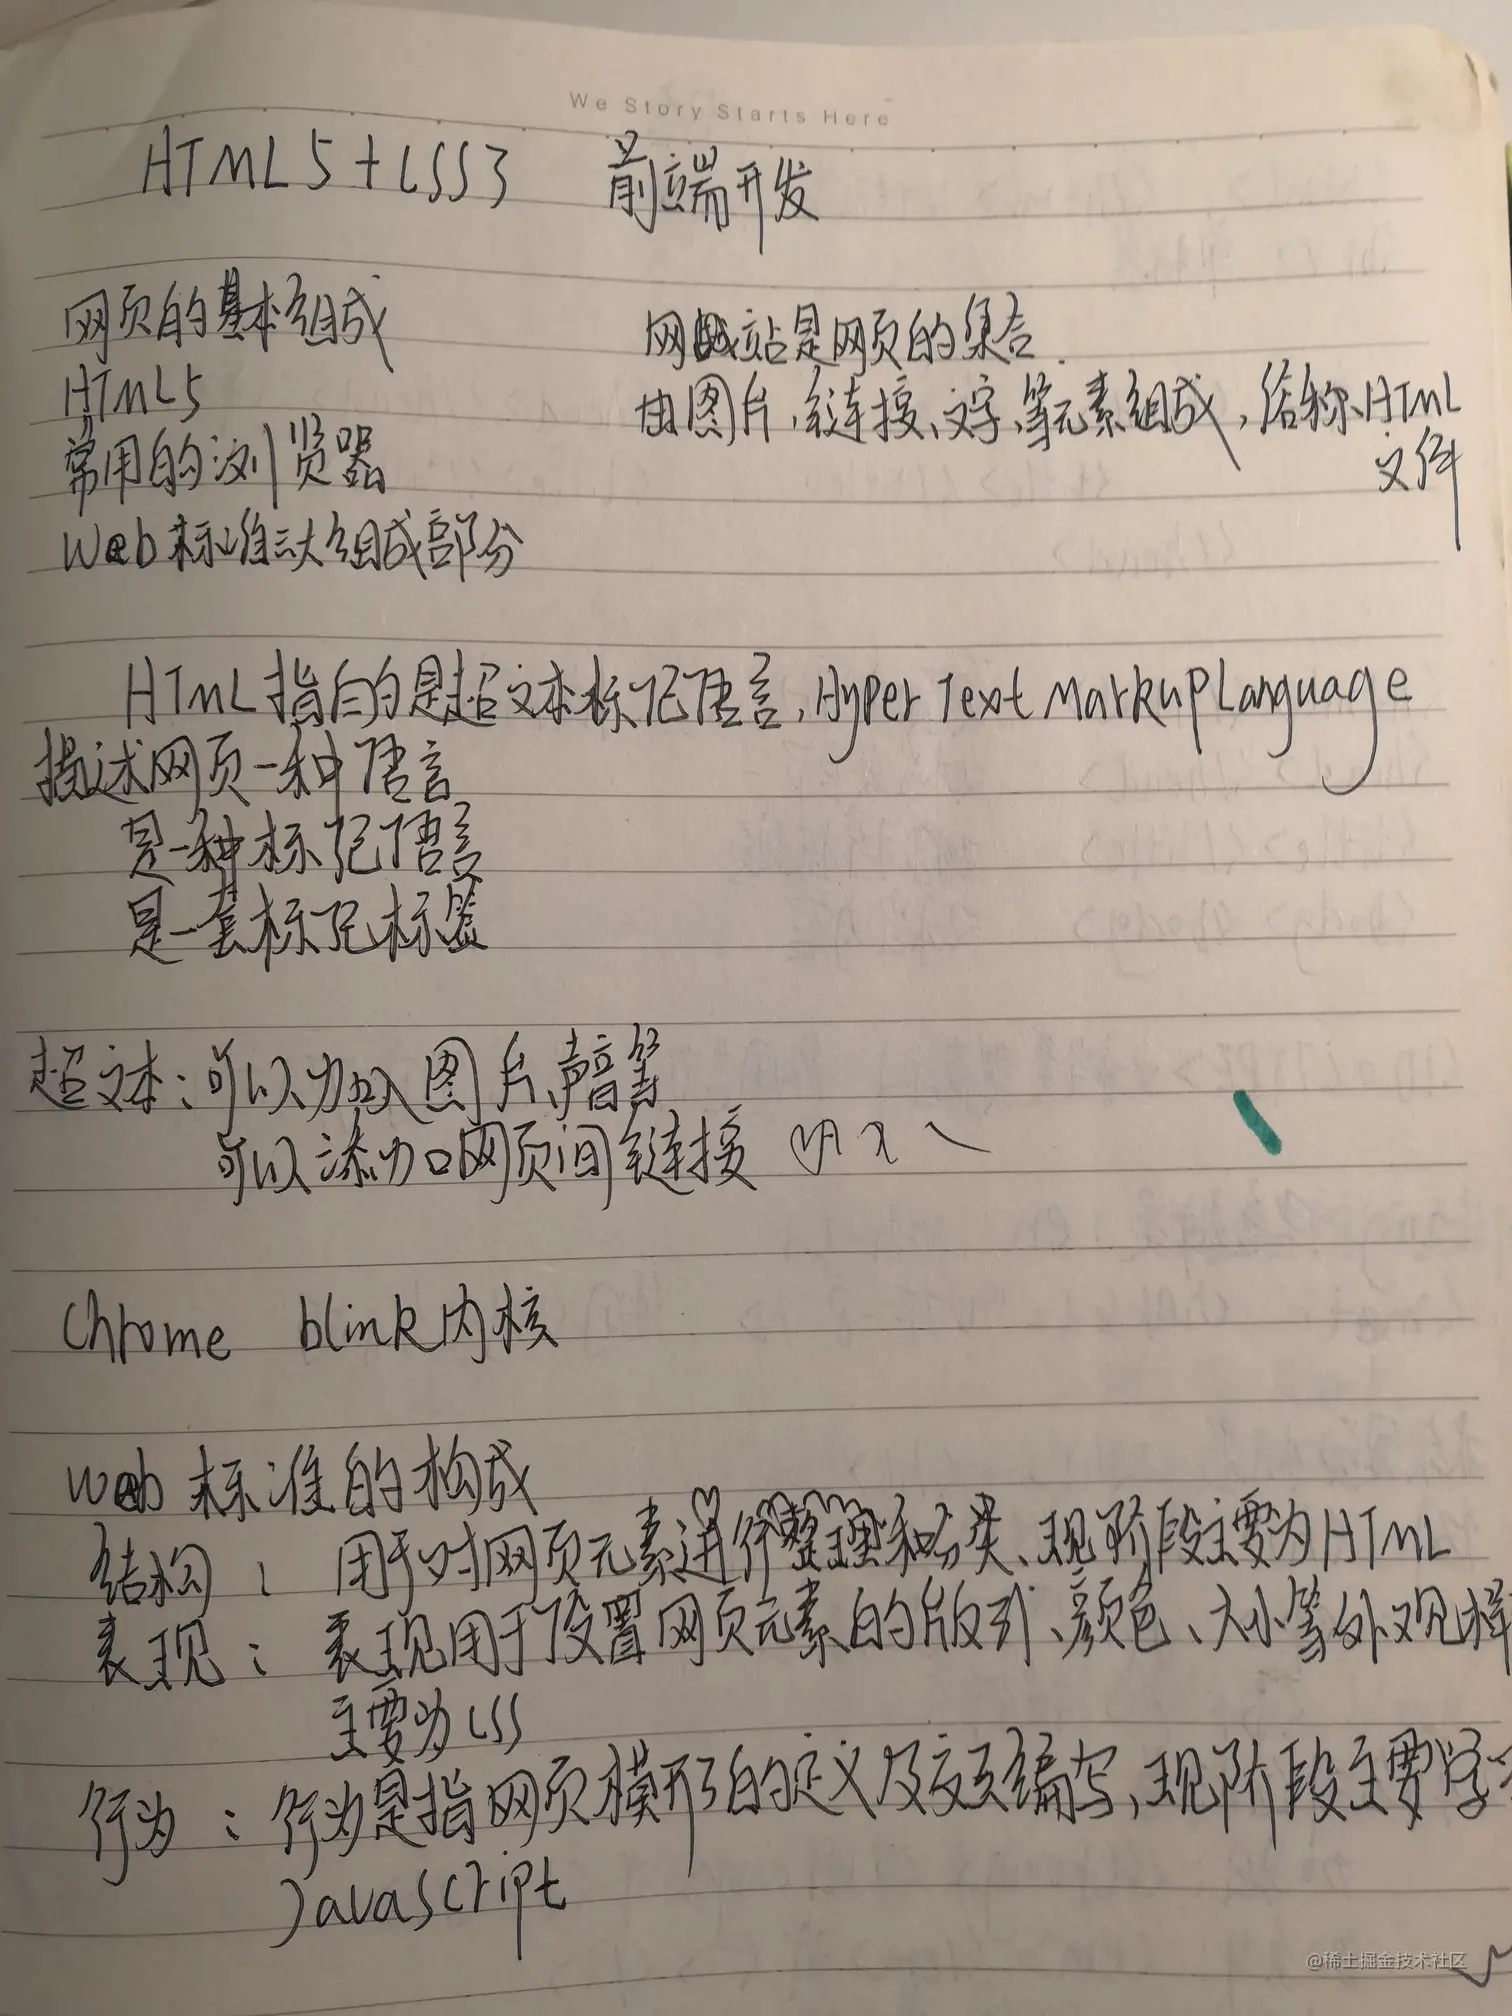 We Story Starts Here
HTML5+CSS3 前端开发
网页的基本组成
网站是网页的集合.
HTML5
由图片、链接、文字、等元素组成,俗称、HTML
文件
常用的浏览器
Web标准三大组成部分
HTML指的是超文本标记语言,Hyper Text Markup Language
描述网页一种语言
是一种标记语言
是一套标记标签
超文本:可以加入图片、声音等
可以添加网页间链接
Chrome blink内核
Web 标准的构成
结构: 用于对网页元素进行整理和分类、现阶段主要为HTML
表现: 表现用于设置网页元素的版式、颜色、大小等外观样
主要为CSS
行为:行为是指网页模形的定义及交互编写,现阶段主要学
Javascript
@稀土掘金技术社区